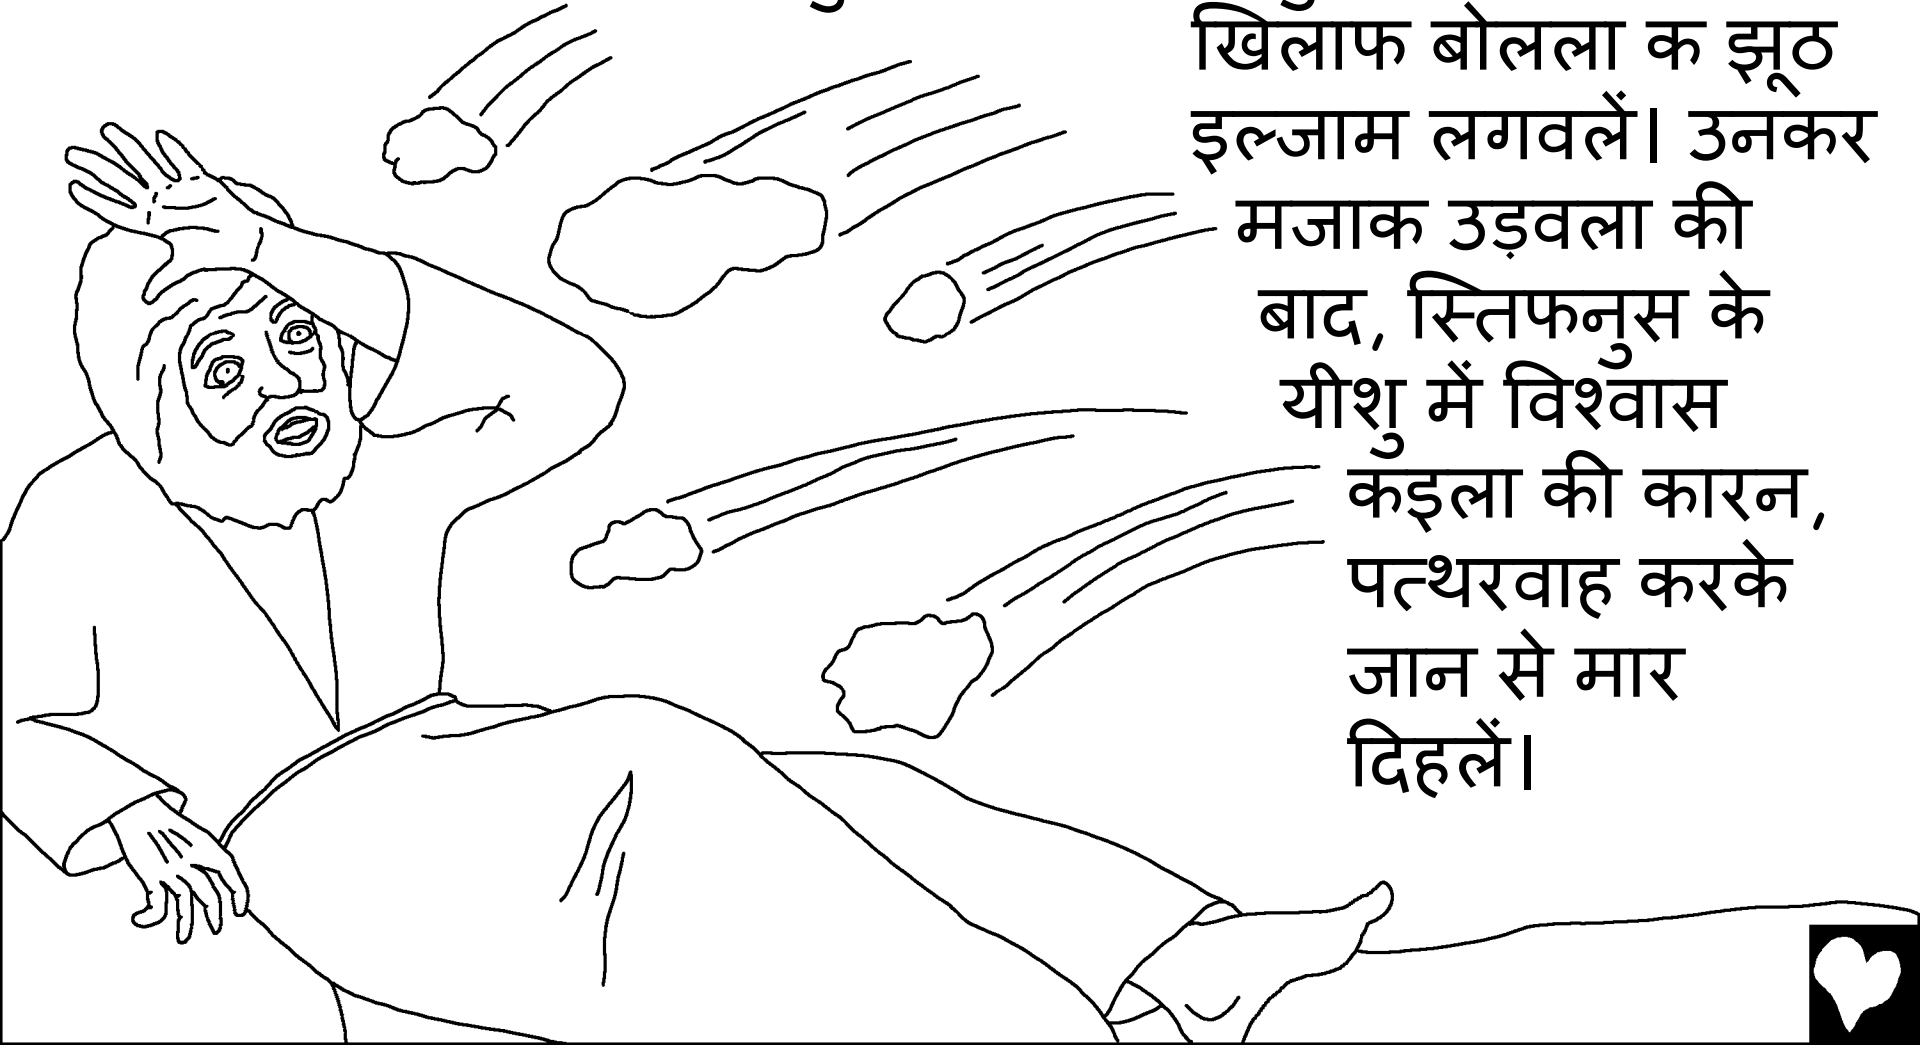 खिलाफ बोलला क झूठ
इल्जाम लगवलें। उनकर
मजाक उड़वला की
बाद, स्तिफनुस के
यीशु में विश्वास
कइला की कारन,
पत्थरवाह करके
जान से मार
दिहलें।